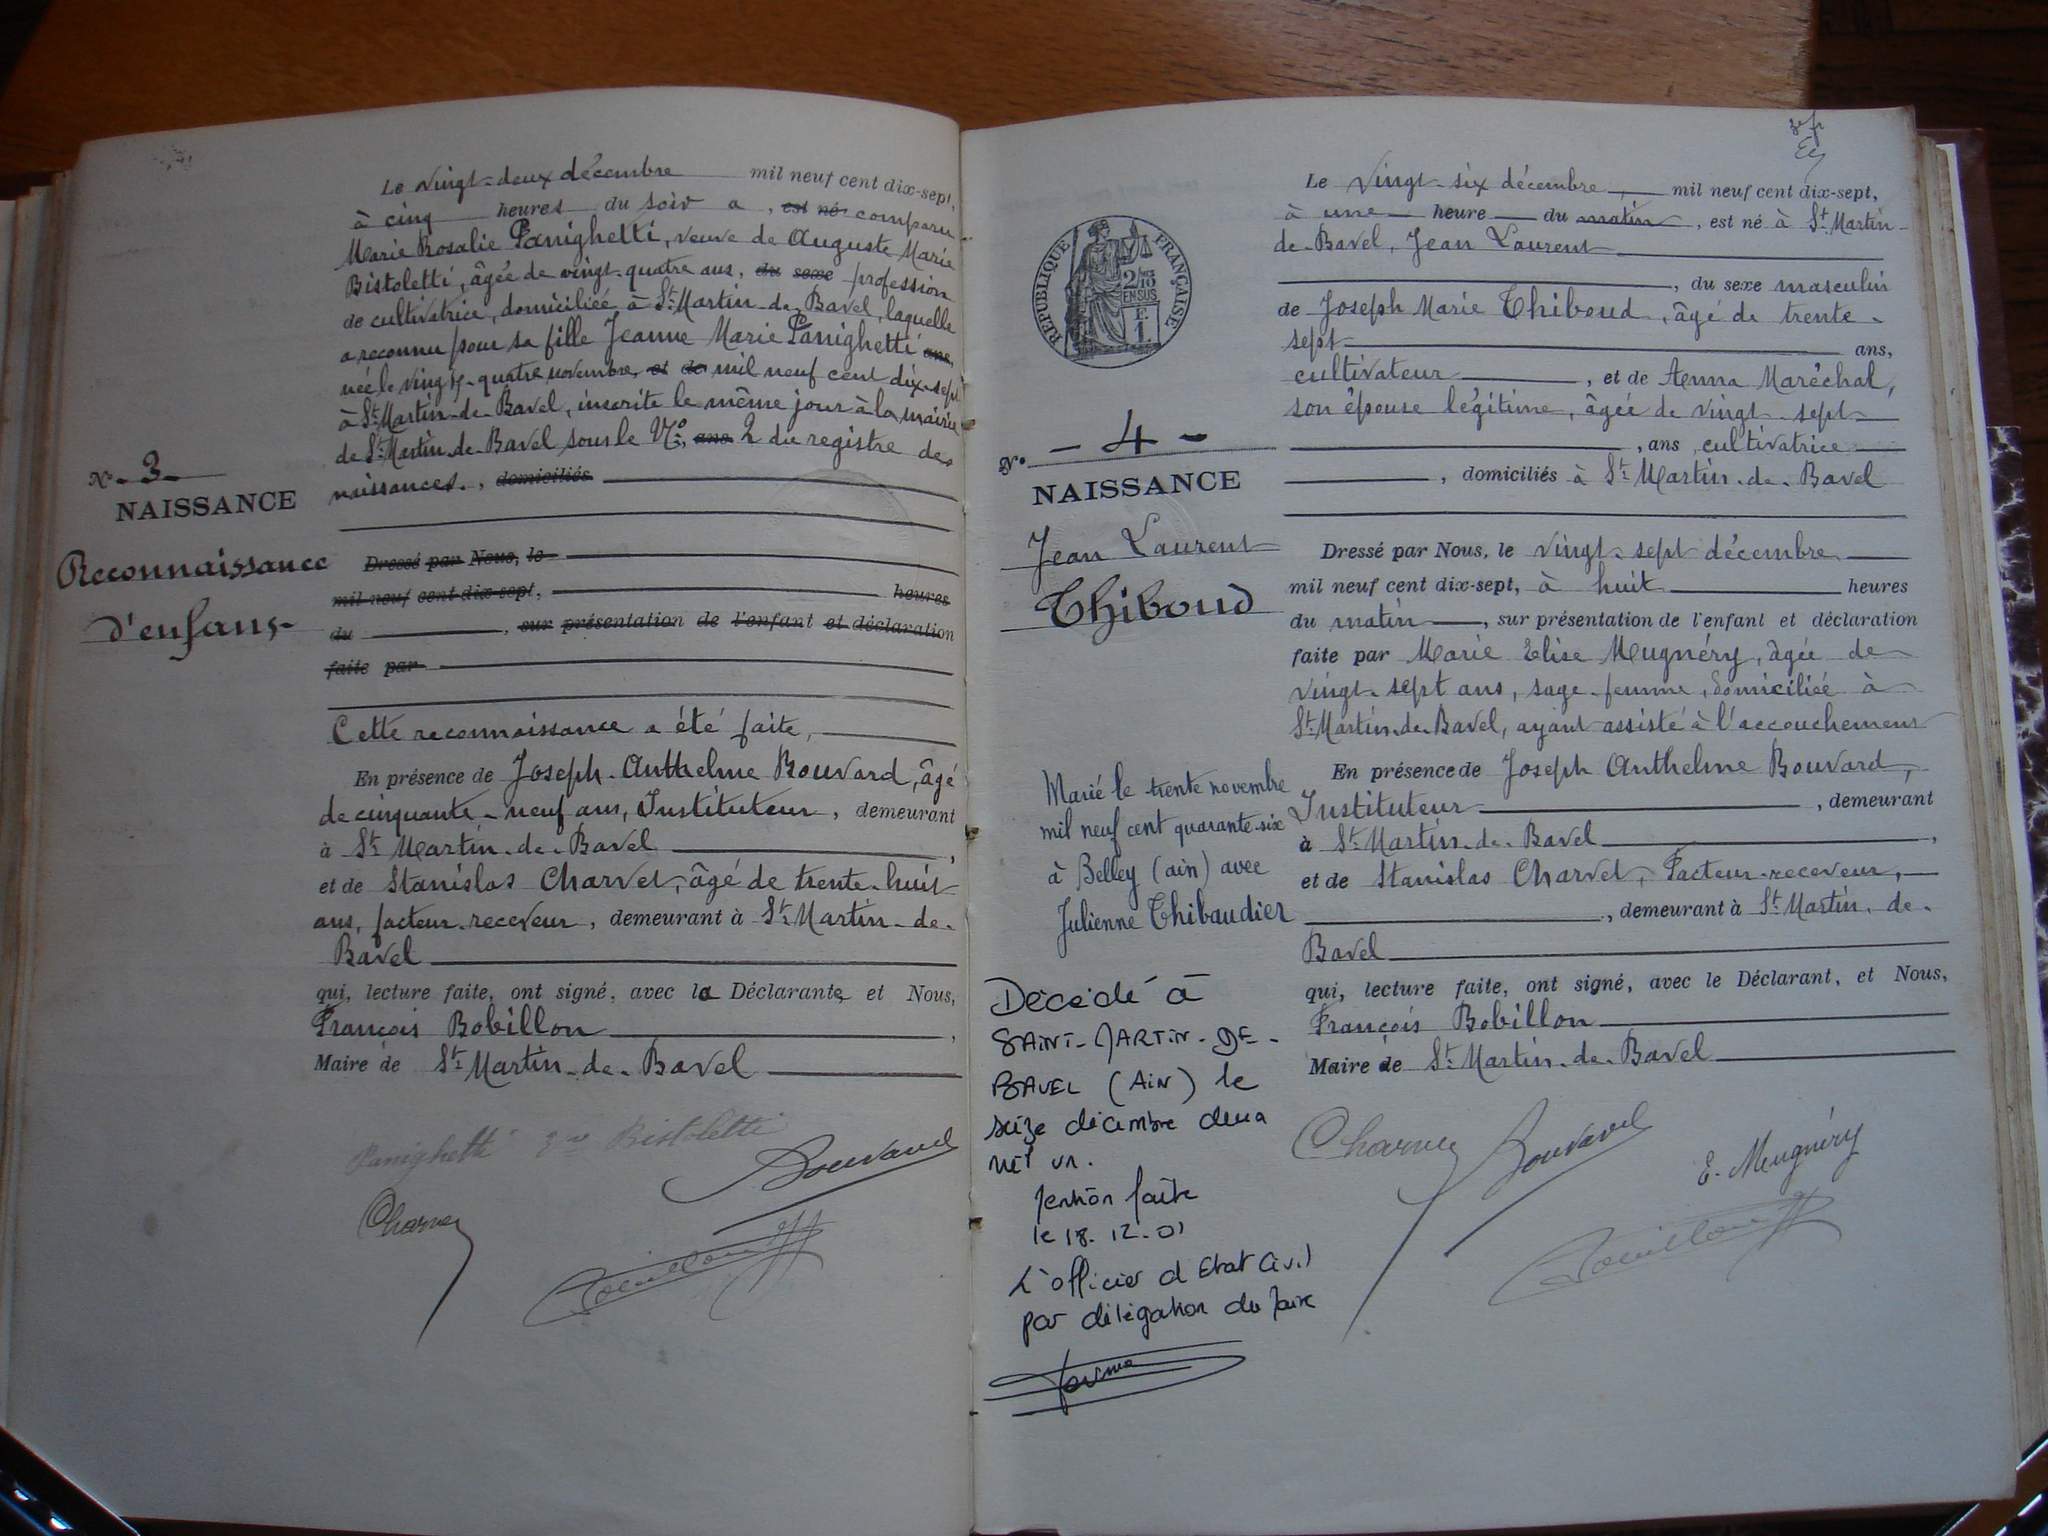 Le vingt-deux décembre mil neuf cent dix-sept,
à cinq heures du soir a, est né comparu
Marie Rosalie Panighetti, veuve de Auguste Marie
Bistoletti, âgée de vingt-quatre ans, du sexe profession
de cultivatrice, domiciliée à St Martin-de-Bavel, laquelle
a reconnu pour sa fille Jeanne Marie Panighetti ans,
née le vingt-quatre novembre, et de mil neuf cent dix-sept
à St Martin-de-Bavel, inscrite le même jour à la mairie
de St Martin-de-Bavel sous le No, ans 2 du registre des
naissances, domiciliés
N° -3-
NAISSANCE
Reconnaissance
d'enfant
Dressé par Nous, le
mil neuf cent dix-sept, heures
du , sur présentation de l'enfant et déclaration
faite par
Cette reconnaissance a été faite,
En présence de Joseph Anthelme Bouvard, âgé
de cinquante-neuf ans, Instituteur, demeurant
à St Martin-de-Bavel,
et de Stanislas Charvet, âgé de trente-huit
ans, facteur-receveur, demeurant à St Martin-de-
Bavel
qui, lecture faite, ont signé, avec la Déclarante, et Nous,
François Bobillon,
Maire de St Martin-de-Bavel
Panighetti Bistoletti
Bouvard
Charvet
Bobillon
RÉPUBLIQUE FRANÇAISE
2/10
EN SUS
F.
1.
N° -4-
NAISSANCE
Jean Laurent
Thiboud
Marié le trente novembre
mil neuf cent quarante-six
à Belley (ain) avec
Julienne Thibaudier
Décédé à
SAINT-MARTIN-DE-
BAVEL (AIN) le
seize décembre deux
mil un.
Mention faite
le 18.12.01
L'officier d'Etat Civil
par délégation du Maire
Le vingt-six décembre mil neuf cent dix-sept,
à une heure du matin, est né à St Martin-
de-Bavel, Jean Laurent
, du sexe masculin
de Joseph Marie Thiboud, âgé de trente-
sept ans,
cultivateur, et de Anna Maréchal,
son épouse légitime, âgée de vingt-sept
, ans, cultivatrice
, domiciliés à St Martin-de-Bavel
Dressé par Nous, le vingt-sept décembre
mil neuf cent dix-sept, à huit heures
du matin, sur présentation de l'enfant et déclaration
faite par Marie Elise Meugnéry, âgée de
vingt-sept ans, sage-femme, domiciliée à
St Martin-de-Bavel, ayant assisté à l'accouchement
En présence de Joseph Anthelme Bouvard,
Instituteur, demeurant
à St Martin-de-Bavel,
et de Stanislas Charvet, Facteur-receveur,
, demeurant à St Martin-de-
Bavel
qui, lecture faite, ont signé, avec le Déclarant, et Nous,
François Bobillon
Maire de St Martin-de-Bavel
Charvet Bouvard E. Meugnéry
Bobillon